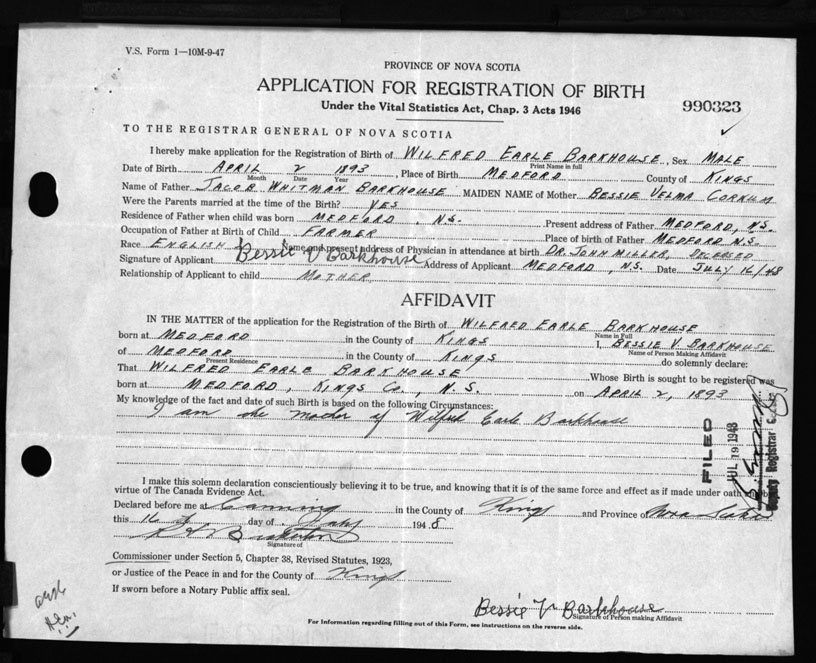 V.S. Form 1—10M-9-47
PROVINCE OF NOVA SCOTIA
APPLICATION FOR REGISTRATION OF BIRTH
Under the Vital Statistics Act, Chap. 3 Acts 1946
990323
TO THE REGISTRAR GENERAL OF NOVA SCOTIA
I hereby make application for the Registration of Birth of WILFRED EARLE BARKHOUSE, Sex MALE
Print Name in full
Date of Birth APRIL 2 1893, Place of Birth MEDFORD County of KINGS
Month Date Year
Name of Father JACOB WHITMAN BARKHOUSE MAIDEN NAME of Mother BESSIE VELMA CORKUM
Were the Parents married at the time of the Birth? YES
Residence of Father when child was born MEDFORD, N.S. Present address of Father MEDFORD, N.S.
Occupation of Father at Birth of Child FARMER Place of birth of Father MEDFORD N.S.
Race ENGLISH Name and present address of Physician in attendance at birth DR. JOHN MILLER, DECEASED
Signature of Applicant Bessie V Barkhouse Address of Applicant MEDFORD, N.S. Date JULY 16/48
Relationship of Applicant to child MOTHER
AFFIDAVIT
IN THE MATTER of the application for the Registration of the Birth of WILFRED EARLE BARKHOUSE
Name in Full
born at MEDFORD in the County of KINGS I, BESSIE V. BARKHOUSE
Name of Person Making Affidavit
of MEDFORD in the County of KINGS do solemnly declare:
Present Residence
That WILFRED EARLE BARKHOUSE Whose Birth is sought to be registered was
born at MEDFORD, KINGS CO., N.S. on APRIL 2, 1893
My knowledge of the fact and date of such Birth is based on the following Circumstances:
I am the mother of Wilfred Earle Barkhouse
FILED
JUL 19 1948
Deputy Registrar
I make this solemn declaration conscientiously believing it to be true, and knowing that it is of the same force and effect as if made under oath by
virtue of The Canada Evidence Act.
Declared before me at Canning in the County of Kings and Province of Nova Scotia
this 16 day of July 1948
Signature of
Commissioner under Section 5, Chapter 38, Revised Statutes, 1923,
or Justice of the Peace in and for the County of Kings
If sworn before a Notary Public affix seal.
Bessie V Barkhouse
Signature of Person making Affidavit
For Information regarding filling out of this Form, see instructions on the reverse side.